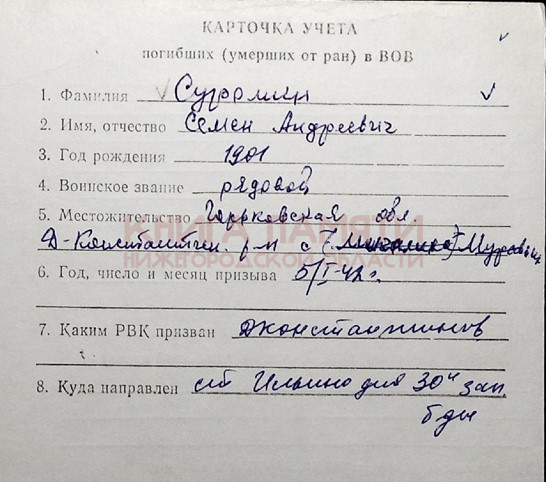 КАРТОЧКА УЧЕТА
погибших (умерших от ран) в ВОВ
1. Фамилия
2. Имя, отчество Семен Андреевич
3. Год рождения 1901
4. Воинское звание рядовой
5. Местожительство Горьковская обл
КНИГА ПАМЯТИ
Д-Константин. р-н с.
НИЖЕГОРОДСКОЙ ОБЛАСТИ
6. Год, число и месяц призыва 5/I-42 г.
7. Каким РВК призван Дконстантинов
8. Куда направлен ст Ильино для 30й зап.
бды